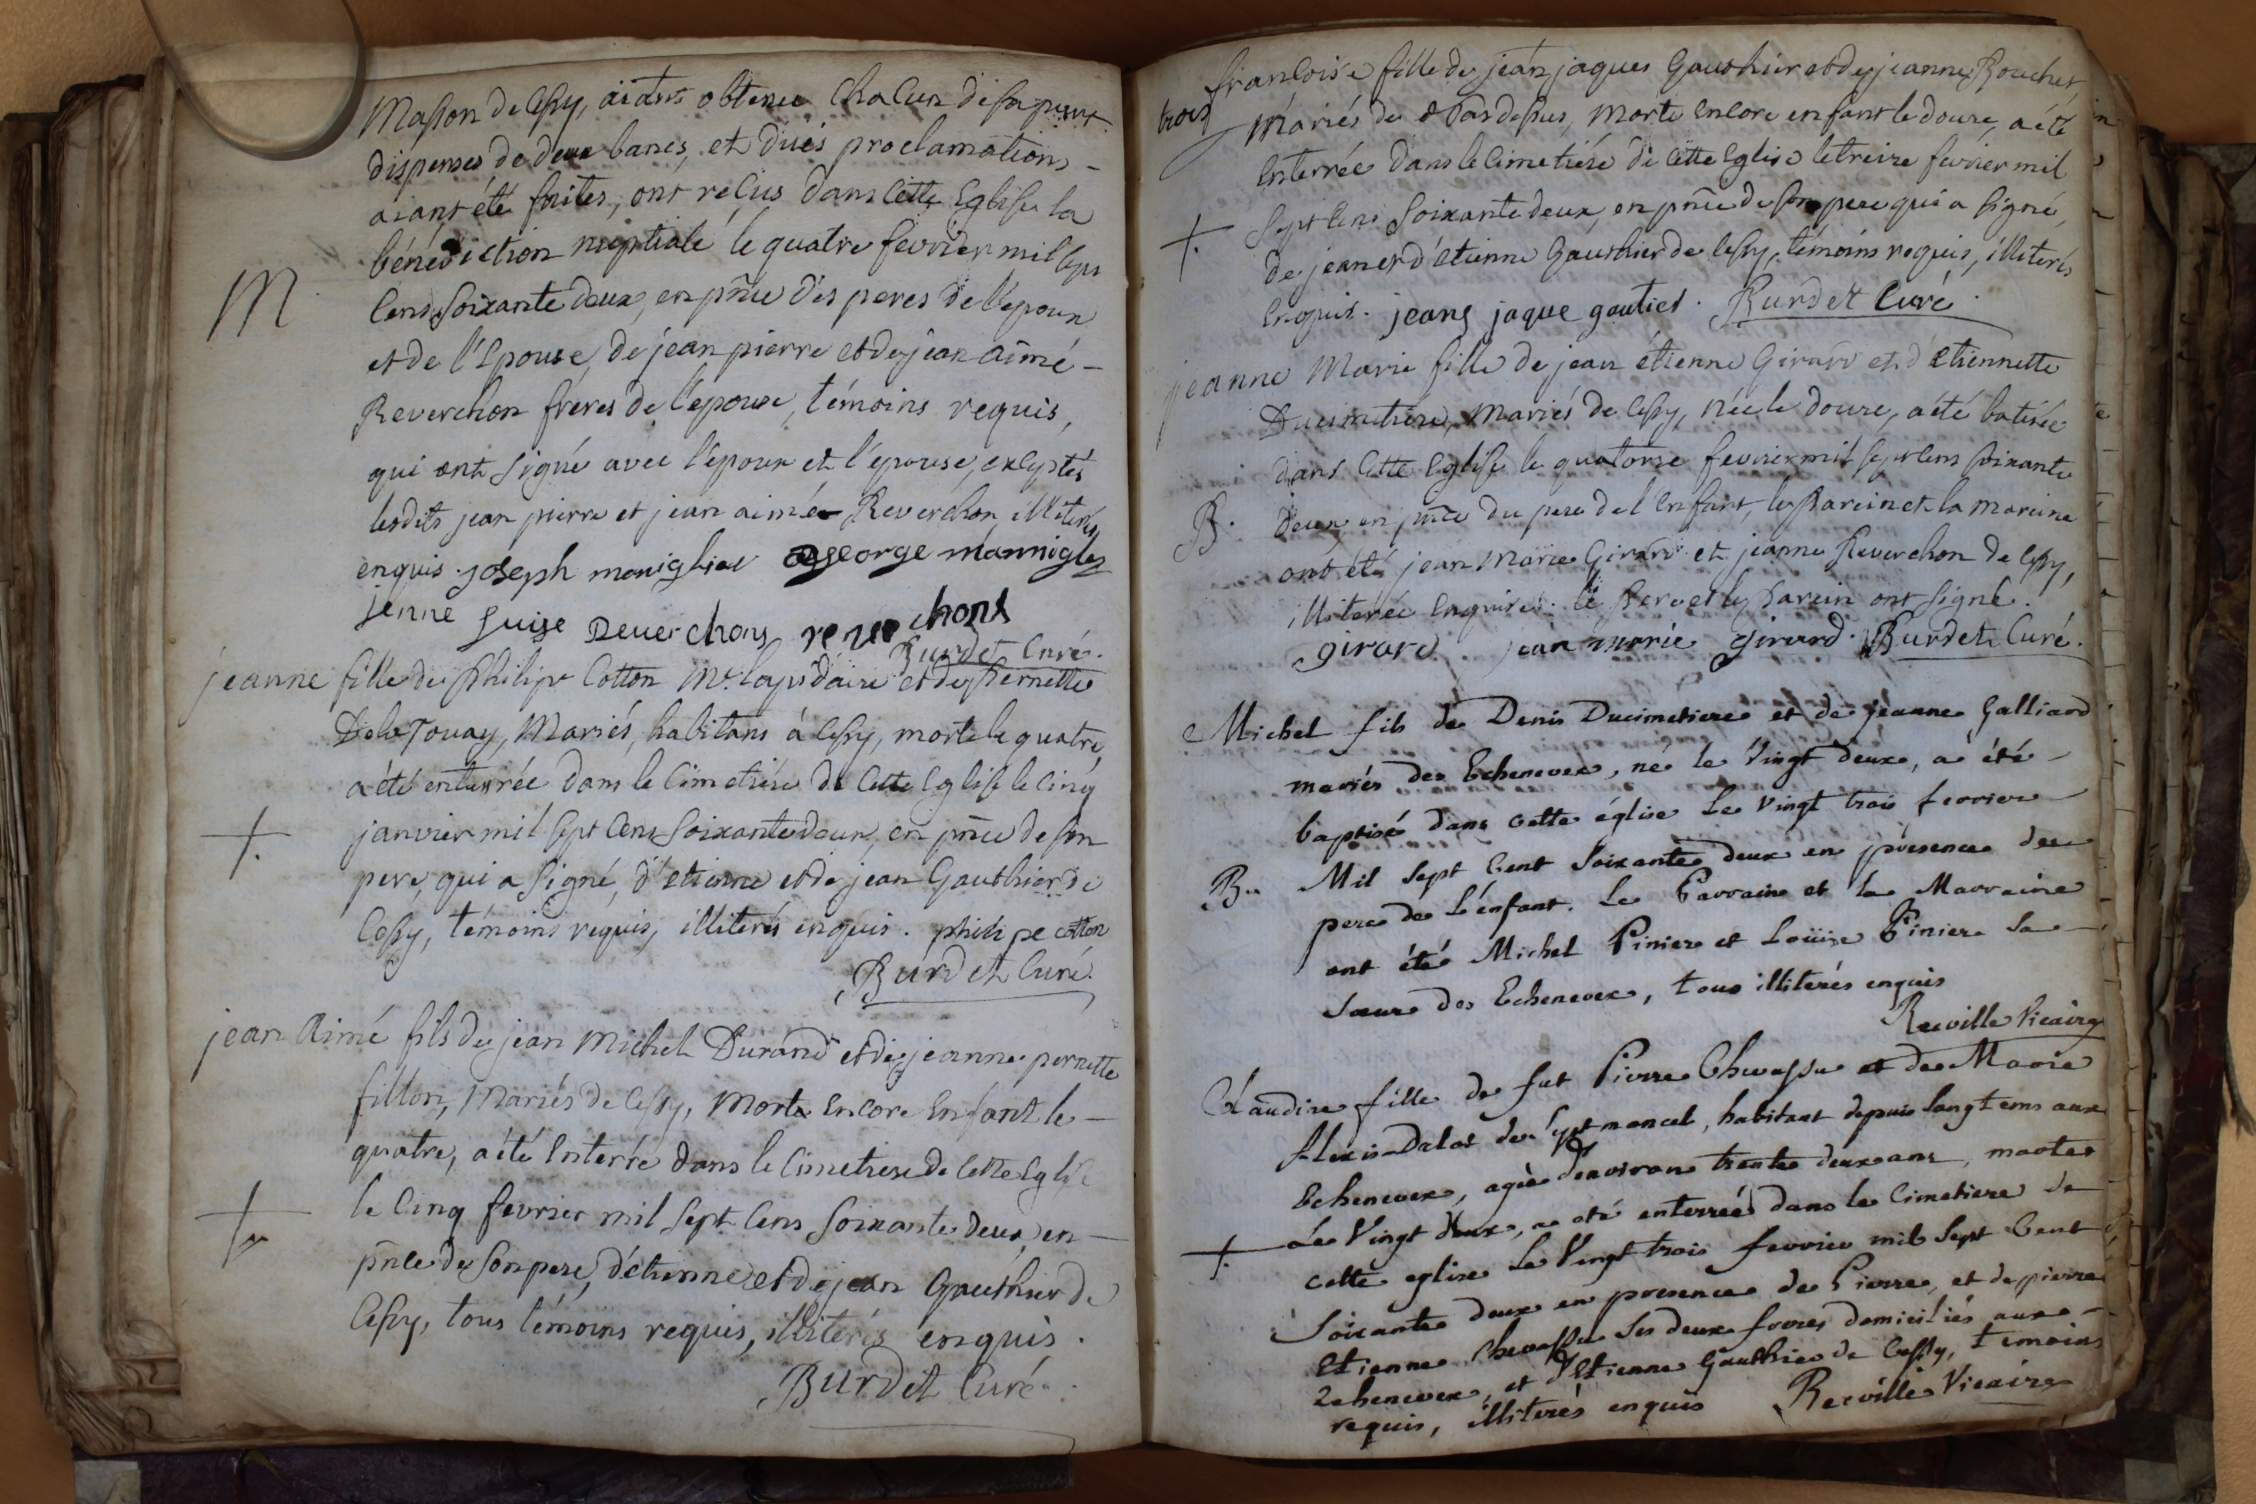 Masson de Cessy, aiant obtenu chacun de sa part
dispenses de deux bancs, et dues proclamations
aiant été faites, ont reçus dans cette Eglise la
bénédiction nuptiale le quatre fevrier mil sept
cens soixante deux, en pñce des peres de l'epoux
et de l'Epouse, de jean pierre et de jean aimé
Reverchon freres de l'epouse, témoins requis,
qui ont signé avec l'epoux et l'epouse, exceptés
lesdits jean pierre et jean aimé Reverchon, illiterés
enquis. joseph maniglier george mannigley
janne Luise Reverchons reverchons
Burdet Curé.
jeanne fille de philipe Cotton Me. lapidaire et de pernette
Dela Touay, Mariés, habitans à Cessy, morte le quatre,
a été enterrée dans le Cimetiére de cette Eglise le cinq
janvier mil sept cens soixante deux, en pñce de son
pere, qui a signé, d'etienne et de jean Gauthier de
Cessy, témoins requis, illiterés enquis. philipe cotton
Burdet Curé.
M
+
jean Aimé fils de jean Michel Durand et de jeanne pernette
fillon, Mariés de Cessy, Mort Encore Enfant le
quatre, a été Enterré dans le Cimetiere de Cette Eglise
le Cinq fevrier mil sept Cens soixante deux, en
pñce de son pere, d'etienne et de jean Gauthier de
Cessy, tous témoins requis, illiterés enquis.
Burdet Curé.
+
françoise fille de jean jaques Gauthier et de jeanne Bouchet,
trois
Mariés de Cessy, Morte Encore enfant le douze, a été
Enterrée dans le Cimetiére de Cette Eglise le treize fevrier mil
sept Cens soixante deux, en pñce de son pere qui a signé,
de jean et d'etienne Gauthier de Cessy, témoins requis, illiterés
Enquis. jeans jaque gautier. Burdet Curé.
+
jeanne Marie fille de jean étienne Girard et d'Etiennette
Ducimetiére, Mariés de Cessy, née le douze, a été batisée
dans Cette Eglise le quatorze fevrier mil sept Cens soixante
B. deux en pñce du pere de l'Enfant, le parein et la mareine
ont été jean Marie Girard et jeanne Reverchon de Cessy,
illiterée Enquise. le pere et le parein ont signé.
girard jean marie girard. Burdet Curé.
Michel fils de Denis Ducimetiere et de jeanne Galliard
mariés des Echenevex, né le vingt deux, a été
baptisé dans cette église le vingt trois fevrier
B. Mil sept cent soixante deux en présence du
pere de l'enfant. Le Parrain et la Marraine
ont été Michel Pinier et Loüise Pinier sa
sœur des Echenevex, tous illiterés enquis
Recville Vicaire
Claudine fille de fut Pierre Chevassu et de Marie
Alexis Dalos de Septmoncel, habitant depuis longtems aux
Echenevex, agée d'environ trente deux ans, morte
Le Vingt deux, a été enterrée dans le Cimetiere de
+ cette eglise le Vingt trois fevrier mil sept Cent
Soixante deux en presence de Pierre, et de pierre
Etienne Chevassu ses deux freres domiciliés aux
Echenevex, et d'Etienne Gauthier de Cessy, temoins
requis, illiterés enquis Recville Vicaire